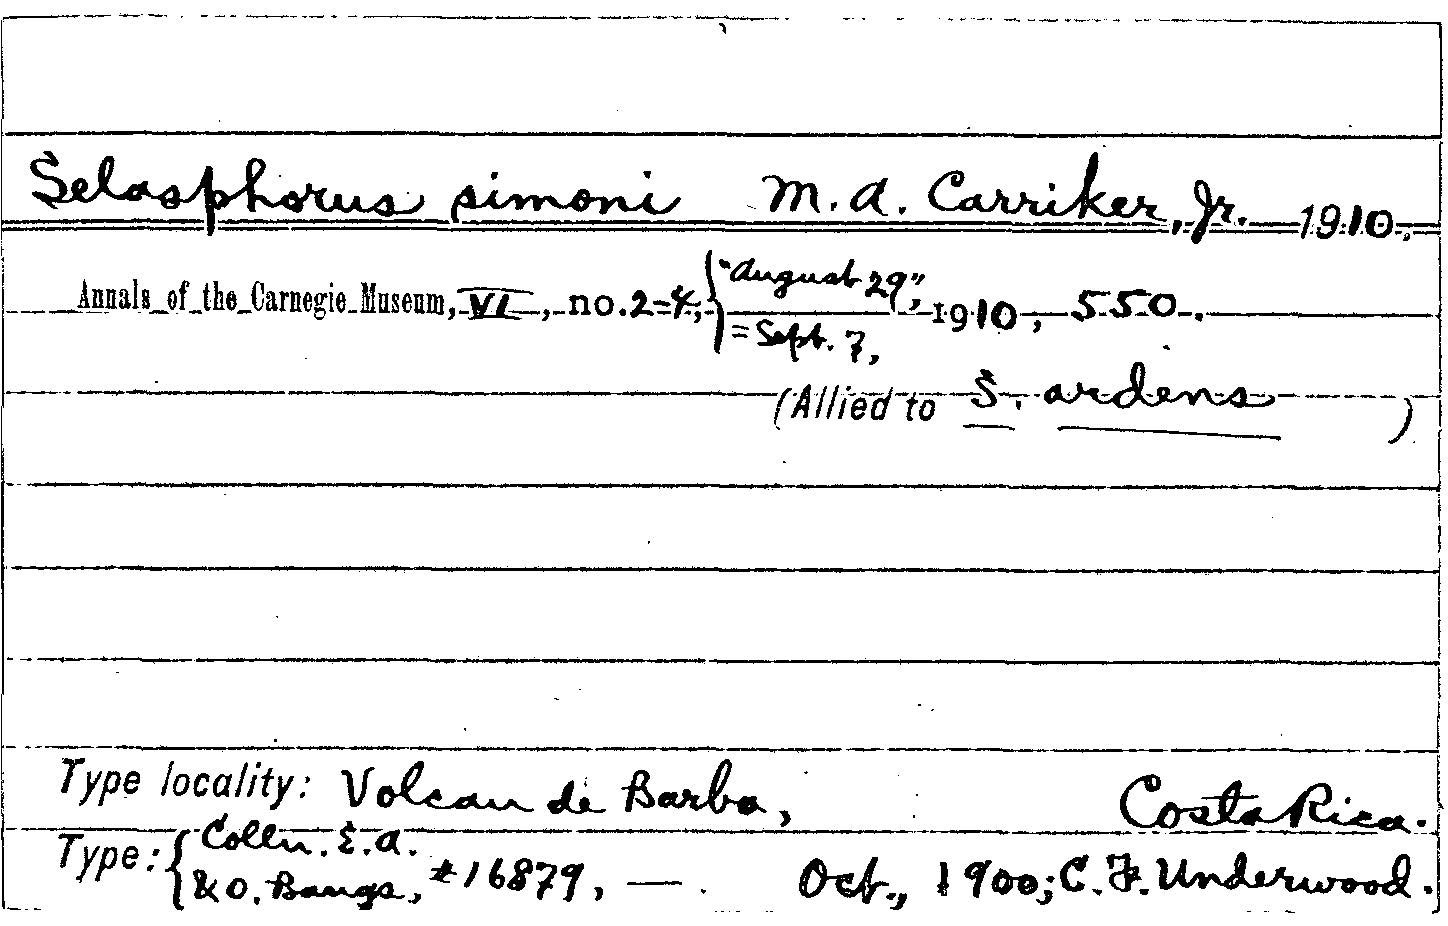 Selasphorus simoni M. A. Carriker, Jr. 1910.
Annals of the Carnegie Museum, VI, no. 2-4, { "August 29", = Sept. 7, 1910, 550.
(Allied to S. ardens)
Type locality: Volcan de Barba, Costa Rica.
Type: { Colln. E. A. & O. Bangs, #16879, — . Oct., 1900; C. F. Underwood.